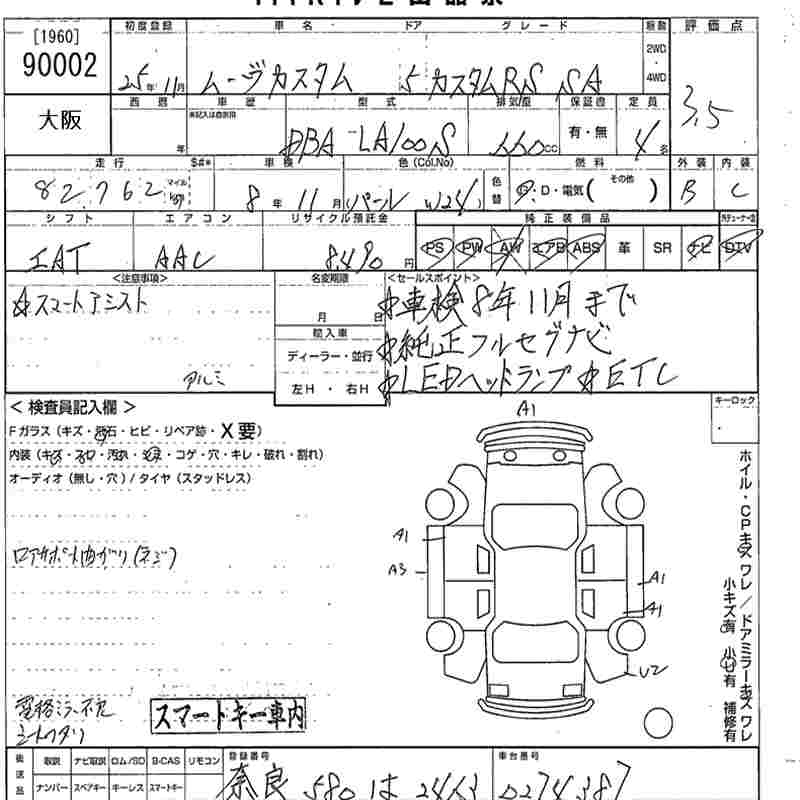 [1960]
90002
大阪
初度登録 車名 ドア グレード 駆動 評価点
25年 11月 ムーヴカスタム 5 カスタムRS SA 2WD・4WD 3.5
西暦 車歴 型式 排気量 保証書 定員
未記入は自家用
年 DBA-LA100S 660cc 有・無 4名
走行 車検 色(Col.No) 燃料 外装 内装
82,762 マイル km 8年 11月 (パール W24) 色替 D・電気( その他 ) B C
シフト エアコン リサイクル預託金 純正装備品
IAT AAC 8,490円 PS PW AW エアB ABS 革 SR ナビ DTV
<注意事項> 名変期限 <セールスポイント>
☆スマートアシスト
アルミ
月 日
輸入車
ディーラー・並行
左H ・ 右H
☆車検8年11月まで
☆純正フルセグナビ
☆LEDヘッドランプ ☆ETC
<検査員記入欄> キーロック
Fガラス(キズ・飛石・ヒビ・リペア跡・X要)
内装(キズ・スロ・汚れ・・コゲ・穴・キレ・破れ・割れ)
オーディオ(無し・穴)/タイヤ(スタッドレス)
A1
A1
A3
A1
A1
U2
ロアサポート曲がり(ネジ)
ホイル・CPキズ ワレ/ドアミラーキズ ワレ
小キズ有 小U有 補修有
電格ミラー不良
シートヘタリ
スマートキー車内
後送品 取説 ナビ取説 ロム/SD B-CAS リモコン 登録番号 車台番号
ナンバー スペアキー キーレス スマートキー 奈良 580 は 2463 0274387